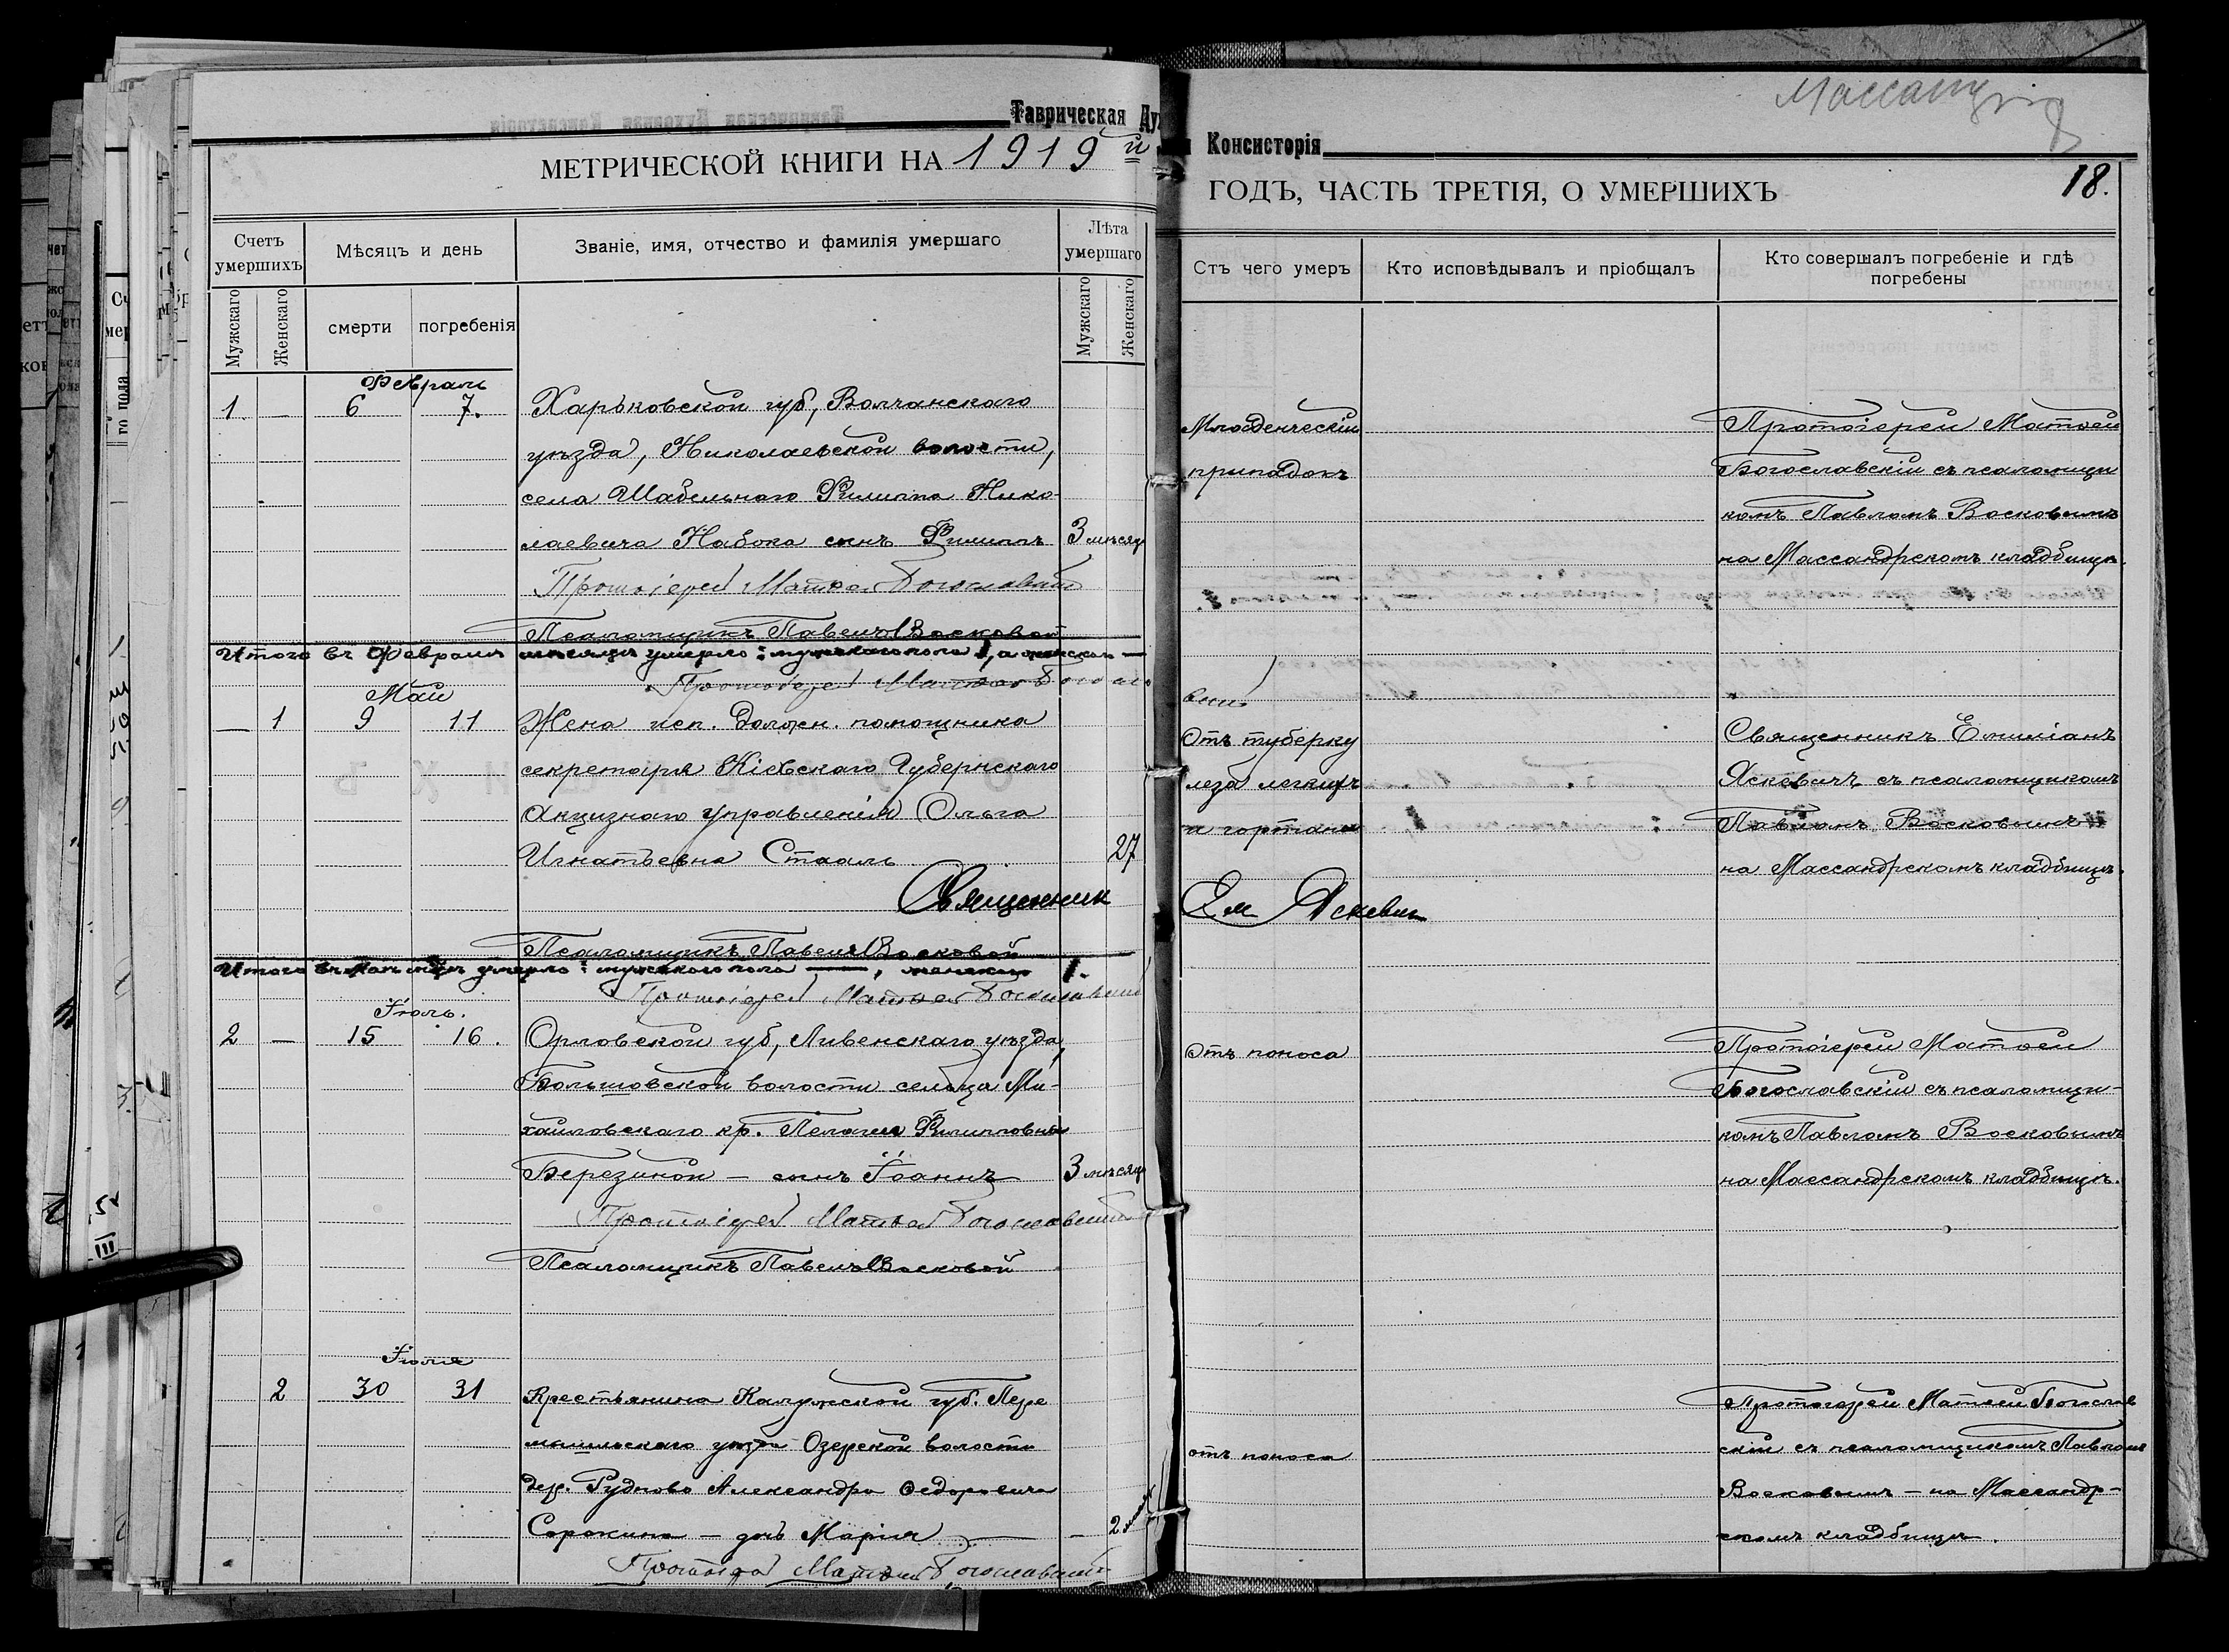 Таврическая Ду
МЕТРИЧЕСКОЙ КНИГИ НА 1919 й
Счетъ умершихъ
Мѣсяцъ и день
Званіе, имя, отчество и фамилія умершаго
Лѣта умершаго
Мужскаго
Женскаго
смерти
погребенія
Мужскаго
Женскаго
Февраль
1 — 6 7. Харьковской губ, Волчанскаго
уѣзда, Николаевской волости,
села Шабельнаго Филиппа Нико-
лаевича Набока сынъ Филиппъ 3 мѣсяц
Протоіерей Матѳей Богославскій
Псаломщикъ Павелъ Восковой
Итого въ Февралѣ мѣсяцѣ умерло: мужскаго пола 1, а женскаго —
Протоіерей Матѳей Богосла
Май
— 1 9 11 Жена исп. должн. помощника
секретаря Кіевскаго Губернскаго
Акцизнаго управленія Ольга
Игнатьевна Стааль 27
Священник
Псаломщикъ Павелъ Восковой
Итого въ Маѣ мѣсяцѣ умерло: мужского пола —, женскаго 1.
Протоіерей Матѳей Богославскій
Іюль.
2 — 15 16. Орловской губ, Ливенскаго уѣзда,
Большовской волости сельца Ми-
хайловскаго кр. Пелагеи Филипповны
Березиной — сынъ Іоаннъ 3 мѣсяц
Протоіерей Матѳей Богославскій
Псаломщикъ Павелъ Восковой
Іюля
2 30 31 Крестьянина Калужской губ. Пере
мышльскаго уѣзда Озерской волости
дер. Рудново Александра Ѳедоровича
Сорокина — дочь Марія — 2
Протоіерей Матѳей Богославскій
Консисторія
18.
ГОДЪ, ЧАСТЬ ТРЕТІЯ, О УМЕРШИХЪ
Отъ чего умеръ
Кто исповѣдывалъ и пріобщалъ
Кто совершалъ погребеніе и гдѣ погребены
Младенческій
припадокъ
Протоіерей Матѳей
Богославскій съ псаломщи
комъ Павломъ Восковымъ
на Массандрскомъ кладбищѣ.
вскій
Отъ туберку
леза легкихъ
и гортани
Священникъ Емиліанъ
Яскевичъ съ псаломщикомъ
Павломъ Восковымъ
на Массандрскомъ кладбищѣ.
Ем Яскевич
Отъ поноса
Протоіерей Матѳей
Богославскій съ псаломщи-
комъ Павломъ Восковымъ
на Массандрскомъ кладбищѣ.
отъ поноса
Протоіерей Матѳей Богослав
скій съ псаломщикомъ Павломъ
Восковымъ — на Массандр-
скомъ кладбищѣ.